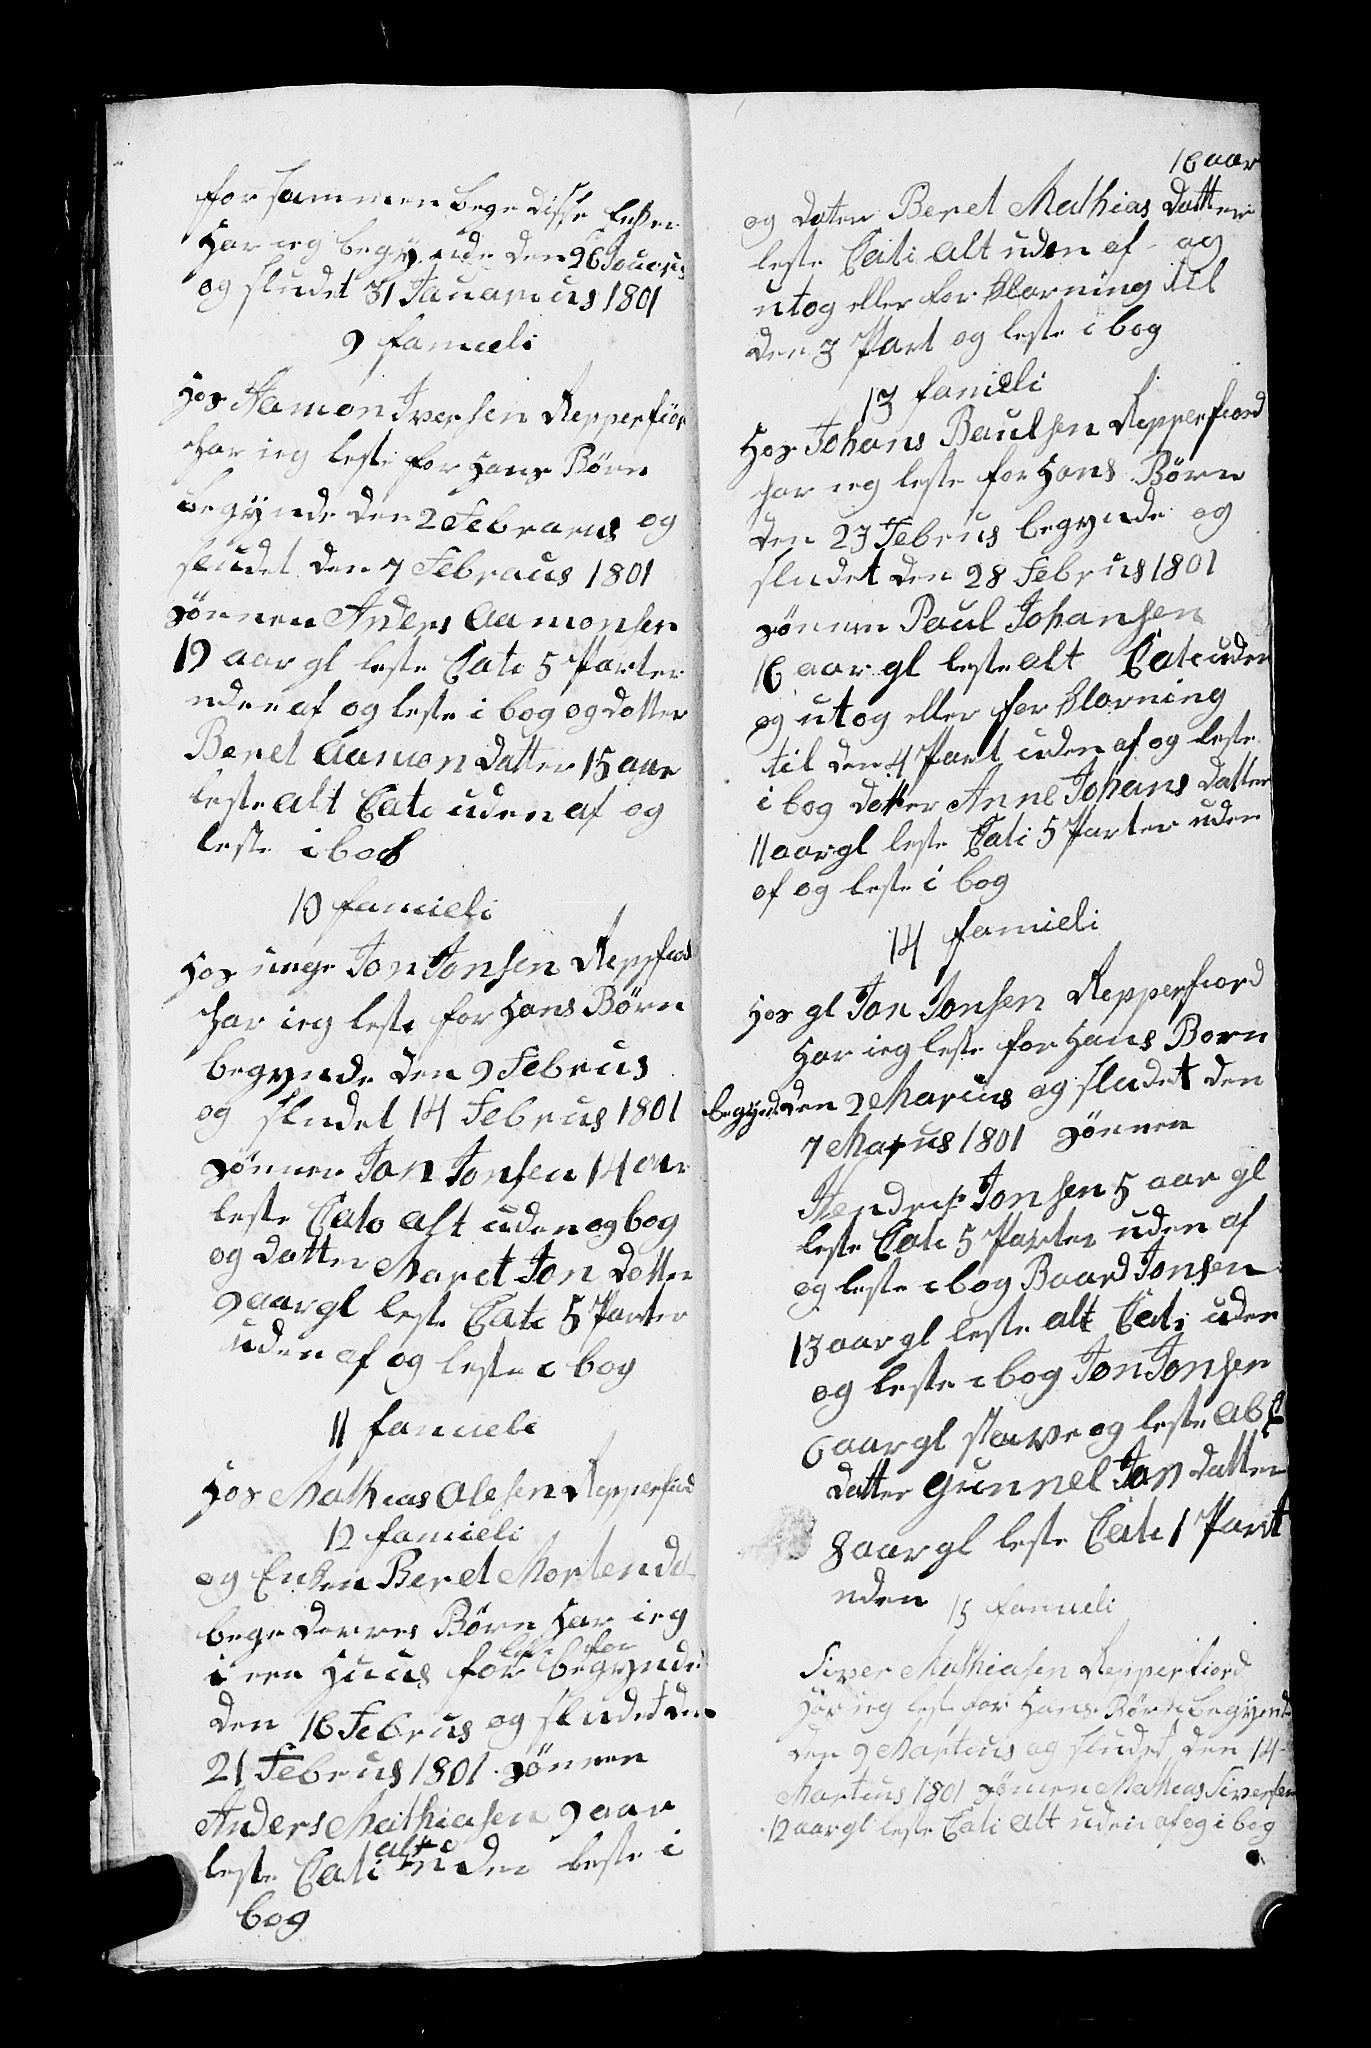 for sammen bege disse Enker
Har ieg begynde den 26 Januarus
og sludet 31 Januarius 1801
9 famieli
Hos Aamon Iversen Repperfiør
har ieg leste for Hans Børn
begynde den 2 Febrarus og
sludet den 7 Febraus 1801
Sønnen Anders Aamonsen
12 aar gl leste Cate 5 Parter
uden af og leste i bog og dotter
Beret Aamon datter 15 aar
leste alt Cate uden af og
leste i bog
10 famieli
Hos unge Jon Jonsen Reppfiord
har ieg leste for Hans Børn
begynde den 9 Februs
og sludet 14 Februs 1801
Sønnen Jon Jonsen 14 aar
leste Cate alt uden og bog
og datter Maret Jon dotter
9 aar gl leste Cate 5 Parter
uden af og leste i bog
11 famieli
Hos Mathias Olesen Repperfiord
12 famieli
og Enken Beret Mortend
bege derres Børn Har ieg
leste for
i een Huus for begynde
den 16 Februs og sludet den
21 Februs 1801 Sønnen
Anders Mathiasen 9 aar
alt
leste Cati uden leste i
bog
16 aar
og doter Beret Mathias datter
leste Cati alt uden af og
utog eller for klarning til
den 3 Part og leste i bog
13 famieli
Hos Johans Baulsen Repperfiord
har ieg leste for Hans Børn
den 23 Februs begynde og
sludet den 28 Februs 1801
Sønnen Paul Johansen
16 aar gl leste alt Cate uden
og utog eller for klarning
til den 4 Part uden af og leste
i bog dotter Anne Johans datter
11 aar gl leste Cati 5 Parter uden
af og leste i bog
14 famieli
Hos gl Jon Jonsen Repperfiord
Har ieg leste for Hans Børn
begynde den 2 Marcus og sludet den
7 Marus 1801 Sønnen
Hendrik Jonsen 5 aar gl
leste Cate 5 Parter uden af
og leste i bog Baard Jonsen
13 aar gl leste alt Cati uden
og leste i bog Jon Jonsen
6 aar gl stave og leste ab
datter Gunnel Jon datter
8 aar gl leste Cate 1 Part
uden
15 famieli
Siver Mathiasen Repperfiord
Har ieg leste for Hans Børn begynde
den 9 Martius og sludet den 14
Martius 1801 Sønnen Mathias Siversen
12 aar gl leste Cati alt uden af og i bog